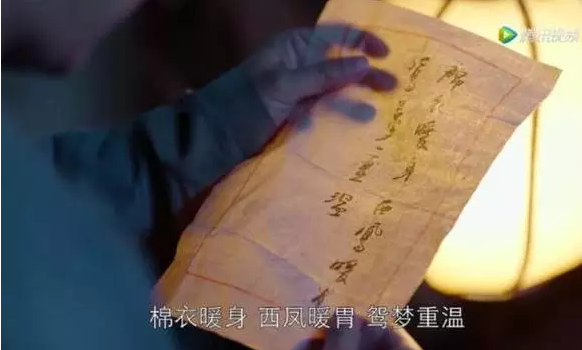 腾讯视频
棉衣暖身 西鳳暖
鴛夢重溫
棉衣暖身 西凤暖胃 鸳梦重温